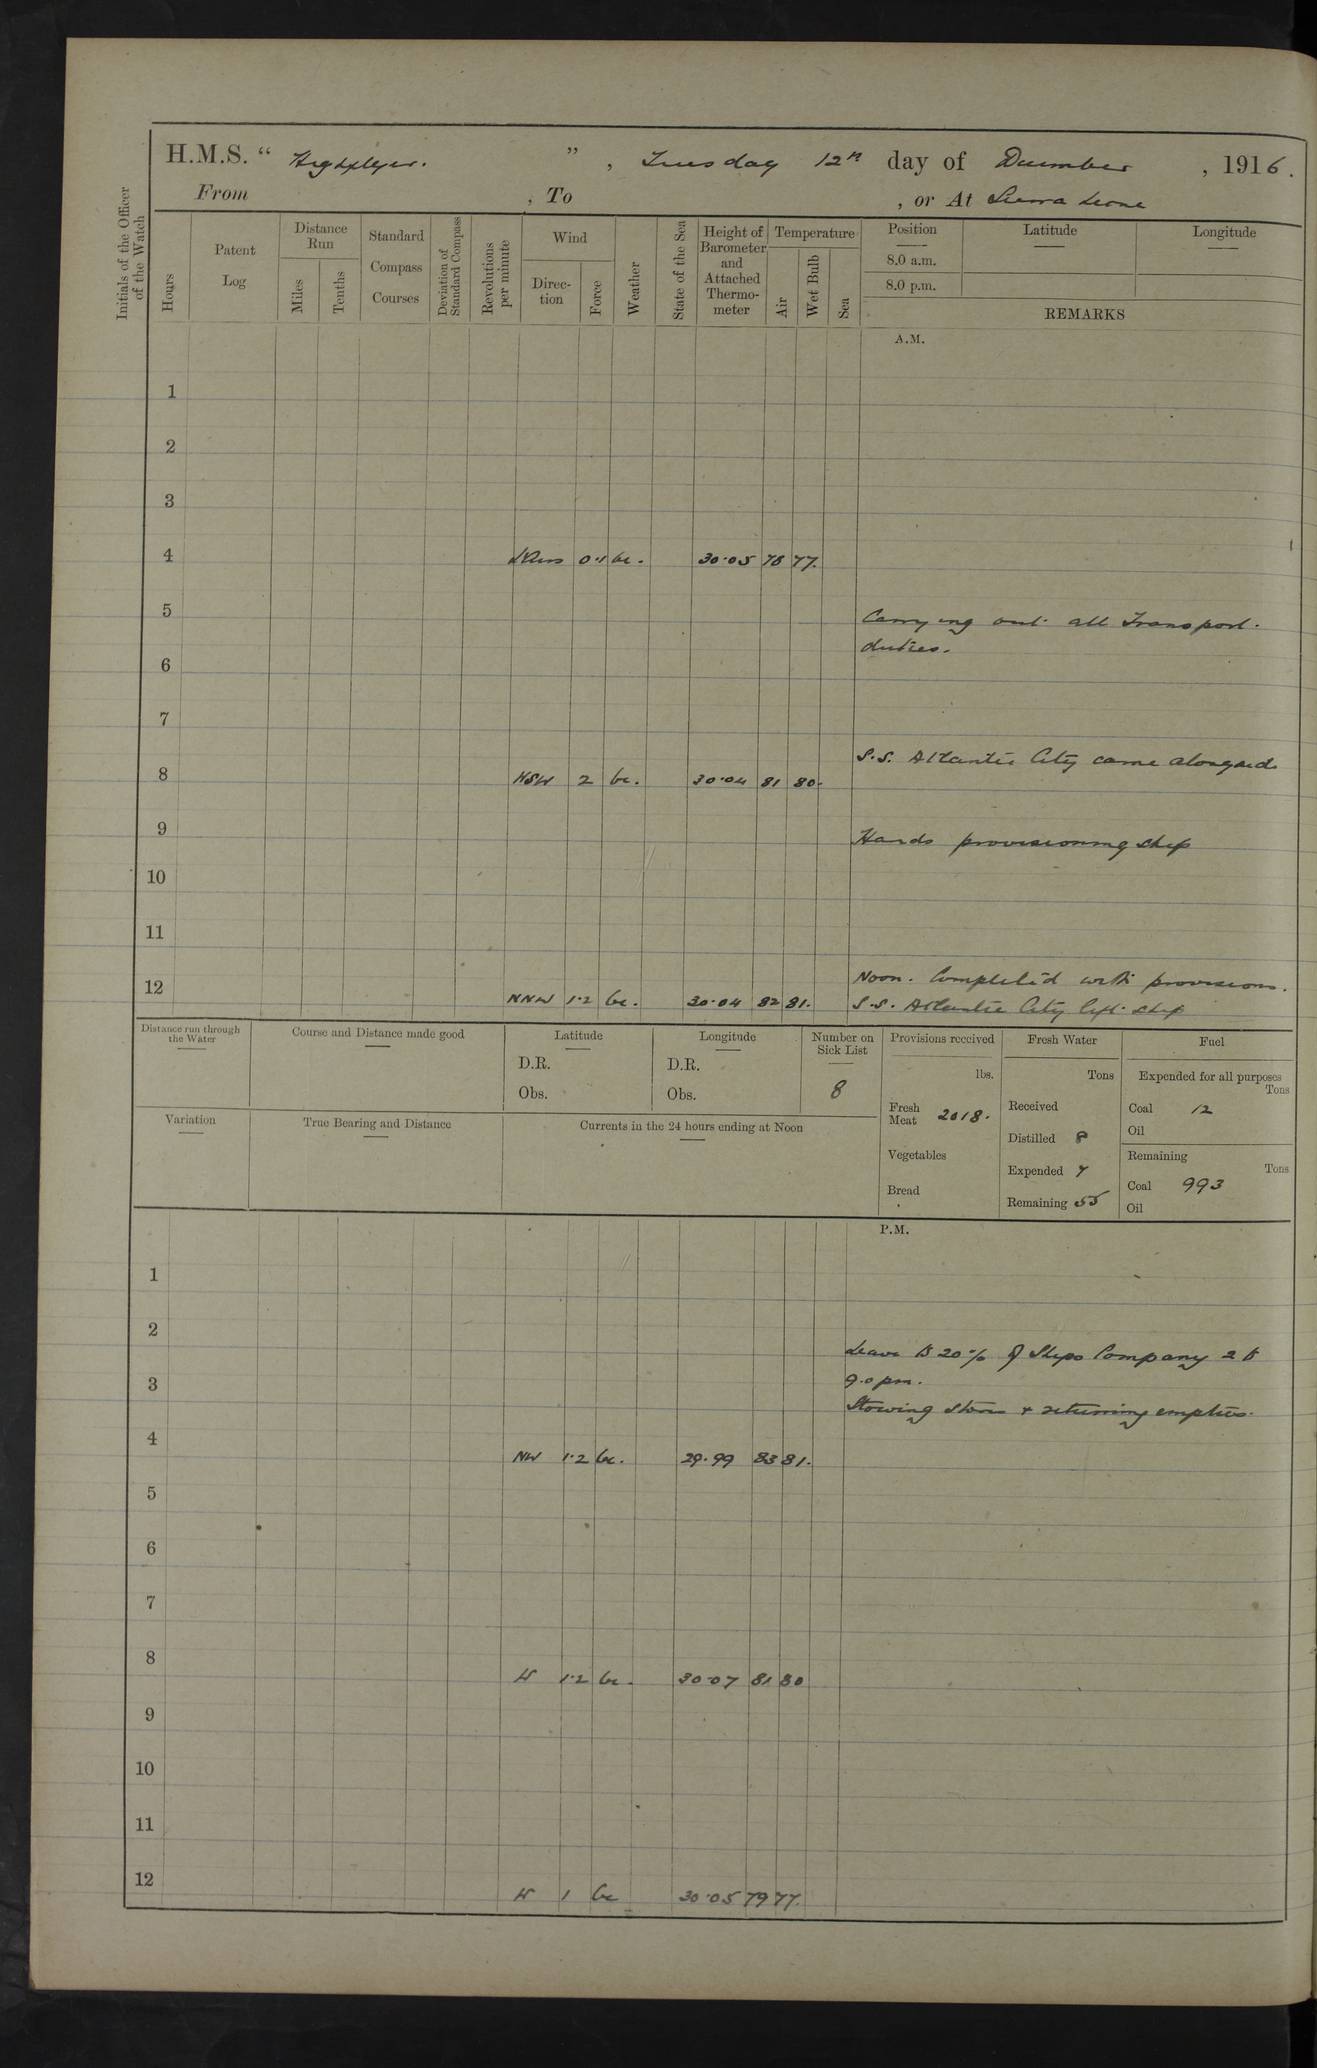 H.M.S. " Highflyer. " , Tuesday 12th day of December , 1916.
From , To , or At Sierra Leone
Initials of the Officer of the Watch
Hours
Patent Log
Distance Run
Miles
Tenths
Standard Compass Courses
Deviation of Standard Compass
Revolutions per minute
Wind
Direction
Force
Weather
State of the Sea
Height of Barometer and Attached Thermometer
Temperature
Air
Wet Bulb
Sea
Position Latitude Longitude
8.0 a.m.
8.0 p.m.
REMARKS
A.M.
1
2
3
4 0·1 bc. 30·05 78 77.
5 Carrying out all Transport
duties.
6
7
S.S. Atlantic City came alongside
8 WSW 2 bc. 30·04 81 80.
9 Hands provisioning ship
10
11
Noon. Completed with provisions.
12 NNW 1·2 bc. 30·04 82 81. S.S. Atlantic City left ship
Distance run through the Water
Course and Distance made good
Latitude
D.R.
Obs.
Longitude
D.R.
Obs.
Number on Sick List
8
Variation
True Bearing and Distance
Currents in the 24 hours ending at Noon
Provisions received
lbs.
Fresh Meat 2018.
Vegetables
Bread
Fresh Water
Tons
Received
Distilled 8
Expended 7
Remaining 55
Fuel
Expended for all purposes
Tons
Coal 12
Oil
Remaining
Tons
Coal 993
Oil
P.M.
1
2
Leave to 20% of Ships Company 2 to
3 9.0 pm.
Stowing stores & returning empties.
4 NW 1·2 bc. 29·99 83 81.
5
6
7
8 W 1·2 bc. 30·07 81 80
9
10
11
12 W 1 bc 30·05 79 77.